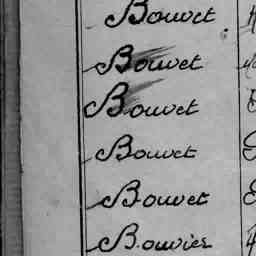 Bouvet
Bouvet
Bouvet
Bouvet
Bouvet
Bouvier